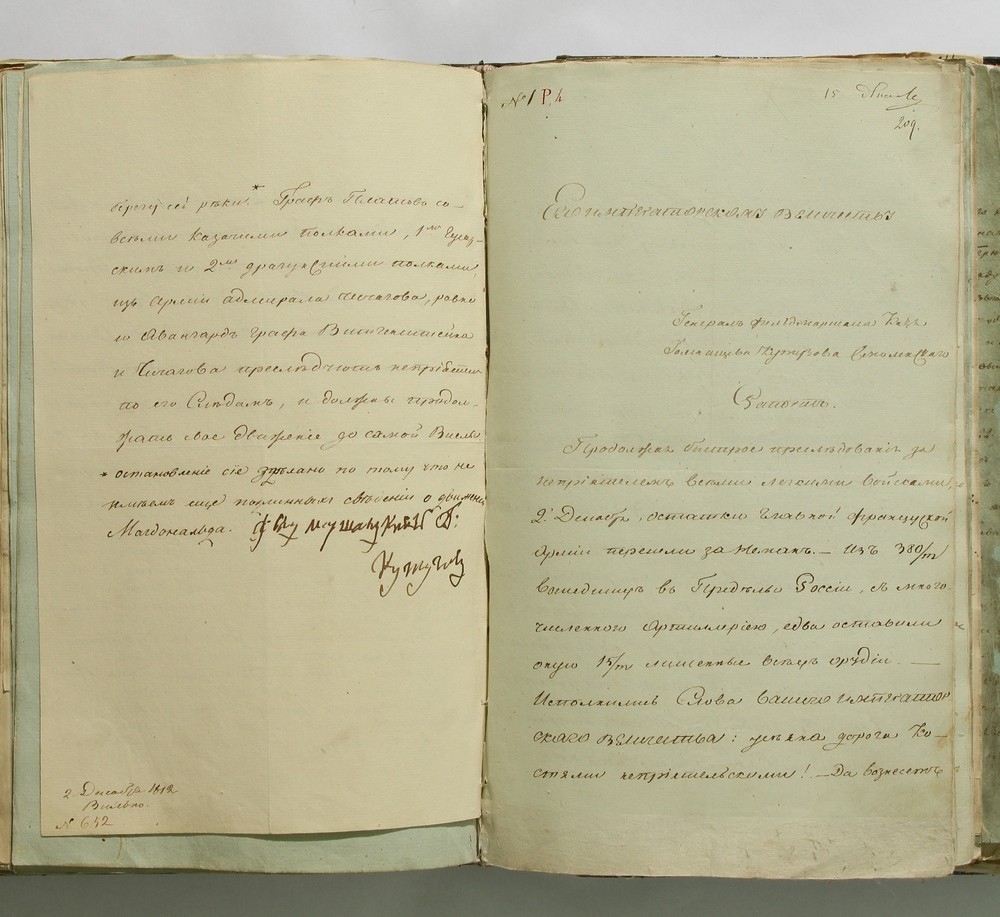 берегу сей рѣки.* Графъ Платовъ со
всѣми казачими полками, 1мъ Егер-
скимъ и 2мя драгунскими полками,
изъ Арміи адмирала Чичагова, равно
и Авангардъ графа Витгенштейна
и Чичагова преслѣдуютъ непріятеля
по его слѣдамъ, и должны продол-
жать свое движеніе до самой Вислы.
* остановленіе сіе здѣлано по тому что не
имѣемъ еще подлинныхъ свѣденіи о движеніи
Магдональда.
Кутузов
2 Декабря 1812
Вильно.
№ 652
№ 1 Р. 4
15
209.
Его Императорскому Величеству
Генералъ Фельдмаршала Князя
Голенищева Кутузова Смоленскаго
Рапортъ.
Продолжая быстрое преслѣдованіе за
непріятелемъ всѣми легкими войсками,
2. Декабря, остатки главной Французской
Арміи перешли за Неманъ. — Изъ 380/m
вошедшихъ въ Предѣлы Россіи, съ много-
численною Артиллеріею, едва оставили
оную 15/m лишенные всѣхъ орудіи. —
Исполнились Слова Вашего Император
скаго Величества: усѣяна дорога Ко-
стями непріятельскими! — Да вознесетъ